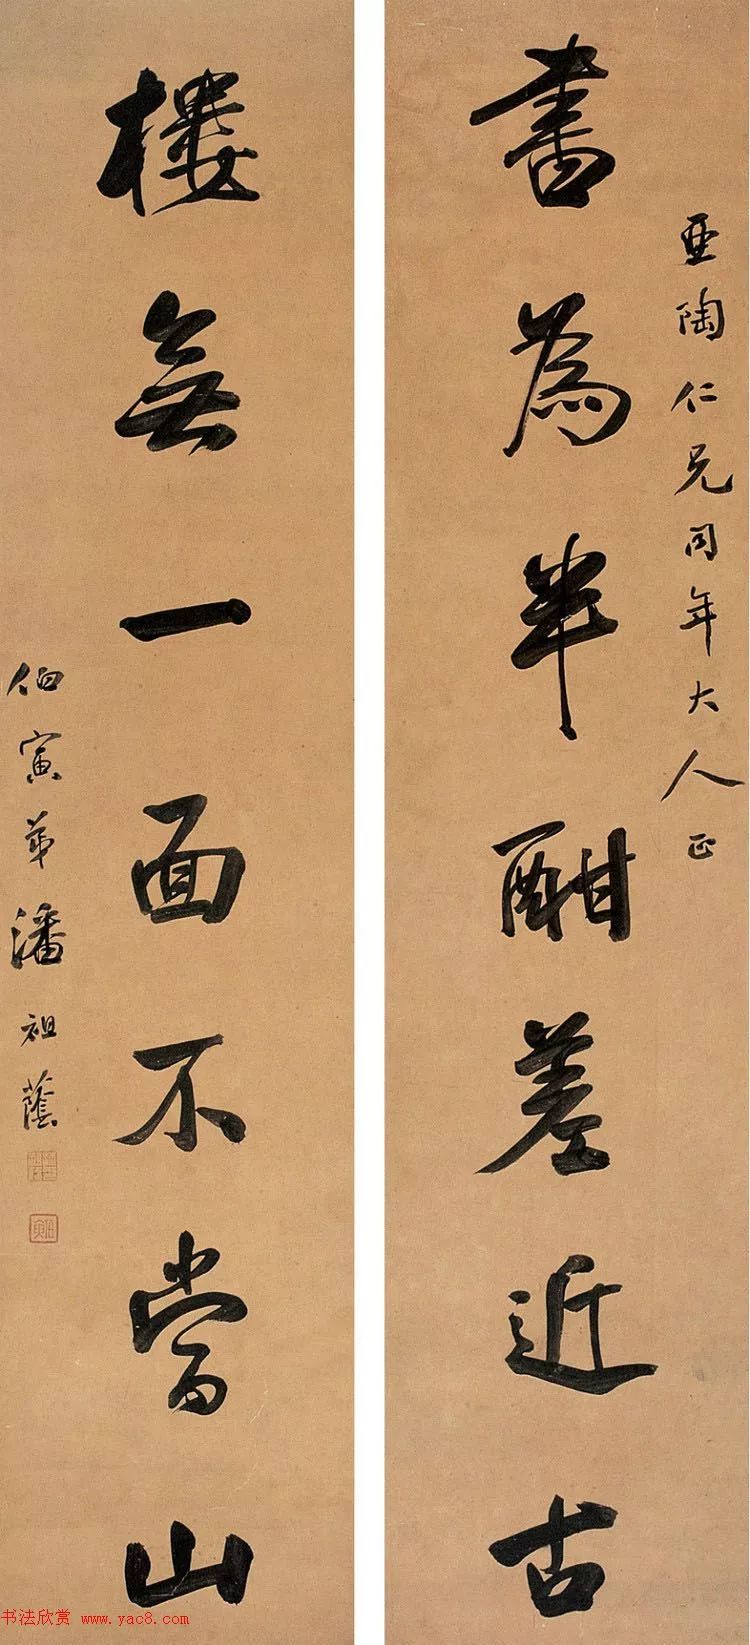 亞陶仁兄同年大人正
書為半酣差近古
樓無一面不當山
伯寅弟潘祖蔭
书法欣赏 www.yac8.com